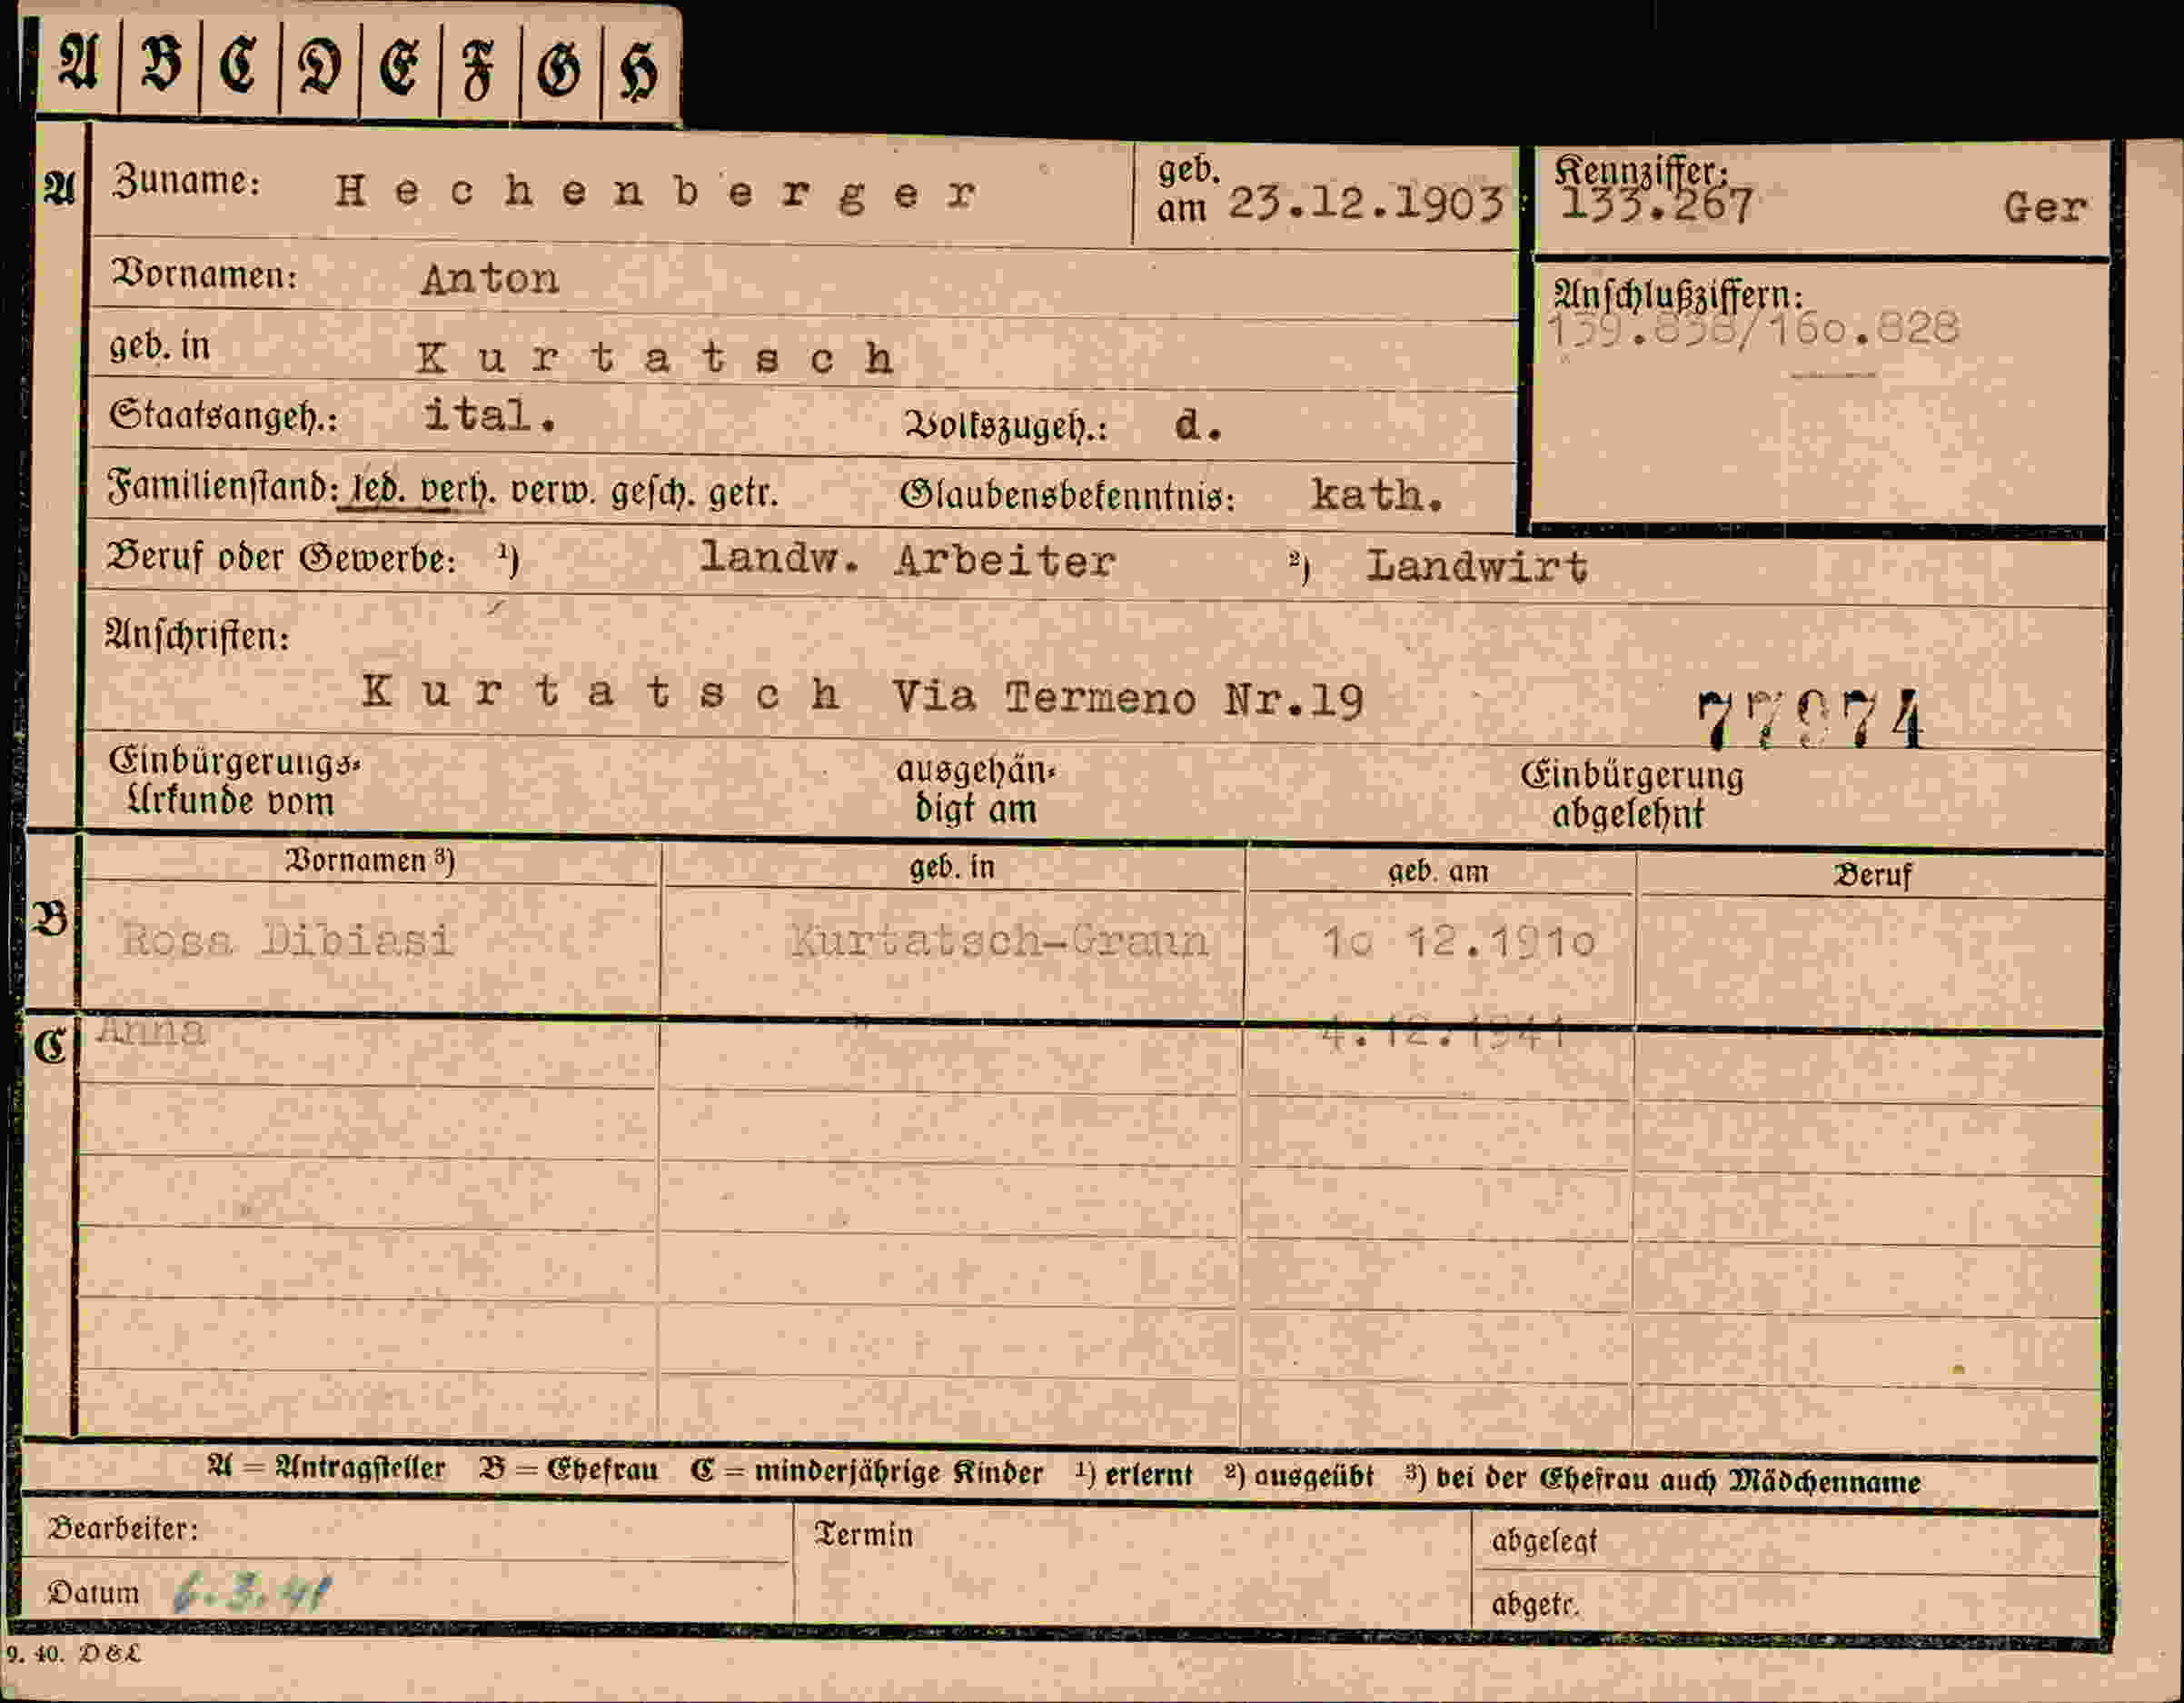 A B C D E F G H
A Zuname: Hechenberger geb. am 23.12.1903 Kennziffer: 133.267 Ger
Vornamen: Anton
Anschlußziffern:
geb. in Kurtatsch
Staatsangeh.: ital. Volkszugeh.: d.
Familienstand: led. verh. verw. gesch. getr. Glaubensbekenntnis: kath.
Beruf oder Gewerbe: ¹) landw. Arbeiter ²) Landwirt
Anschriften:
Kurtatsch Via Termeno Nr.19
Einbürgerungs-
Urkunde vom
ausgehän-
digt am
Einbürgerung
abgelehnt
Vornamen ³) geb. in geb. am Beruf
B Rosa Dibiasi Kurtatsch-Graun 1o 12.191o
C Anna " 4.12.1941
A = Antragsteller B = Ehefrau C = minderjährige Kinder ¹) erlernt ²) ausgeübt ³) bei der Ehefrau auch Mädchenname
Bearbeiter: Termin abgelegt
Datum 6.3.41 abgetr.
9. 40. D&L